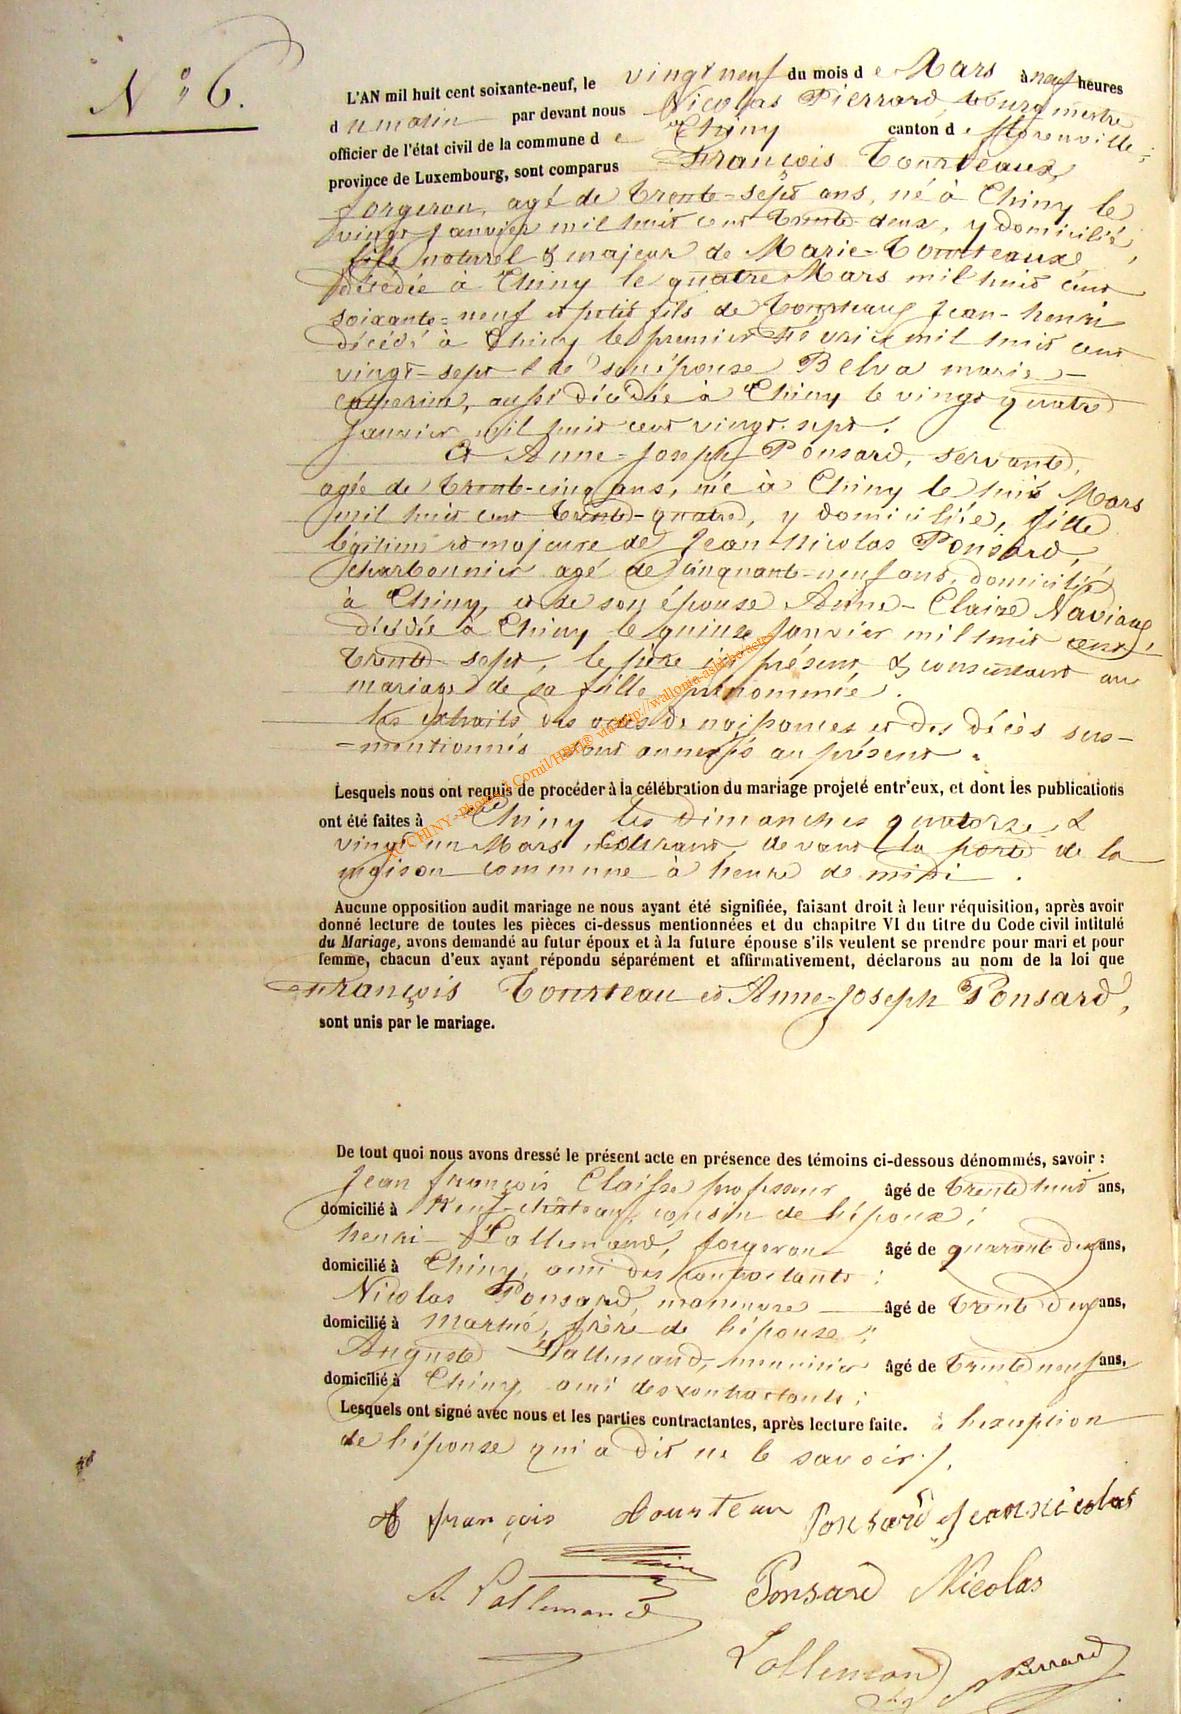 N° 6.
L'AN mil huit cent soixante-neuf, le vingt neuf du mois d e Mars à neuf heures
d u matin par devant nous Nicolas Pierrard, bourgmestre
officier de l'état civil de la commune d e Chiny canton d e florenville
province de Luxembourg, sont comparus François Tourteaux,
forgeron, agé de trente-sept ans, né à Chiny le
vingt Janvier mil huit cent trente-deux, y domicilié,
fils naturel & majeur de Marie-Tourteaux
décédée à Chiny le quatre Mars mil huit cent
soixante-neuf et petit fils de Tourteaux Jean-henri
décédé à Chiny le premier Février mil huit cent
vingt-sept & de son épouse Belva marie-
catherine, aussi décédée à Chiny le vingt quatre
Janvier mil huit cent vingt-sept.
Et Anne-Joseph Ponsard, servante,
agée de trente-cinq ans, née à Chiny le huit Mars
mil huit cent trente-quatre, y domiciliée, fille
légitime et majeure de Jean Nicolas Ponsard,
charbonnier agé de cinquante-neuf ans, domicilié
à Chiny, et de son épouse Anne-Claire Naviaux
décédée à Chiny le quinze Janvier mil huit cent
trente-sept, le père ici présent & consentant au
mariage de sa fille prénommée.
Les extraits des actes de naissances et des décès sus-
-mentionnés sont annexés au présent.
AC CHINY - Photos J Cornil/HBH© via http://wallonia-asbl.be/actes
Lesquels nous ont requis de procéder à la célébration du mariage projeté entr'eux, et dont les publications
ont été faites à Chiny les dimanches quatorze &
vingt un Mars courant, devant la porte de la
maison commune à heure de midi.
Aucune opposition audit mariage ne nous ayant été signifiée, faisant droit à leur réquisition, après avoir
donné lecture de toutes les pièces ci-dessus mentionnées et du chapitre VI du titre du Code civil intitulé
du Mariage, avons demandé au futur époux et à la future épouse s'ils veulent se prendre pour mari et pour
femme, chacun d'eux ayant répondu séparément et affirmativement, déclarons au nom de la loi que
François Tourteau et Anne-Joseph Ponsard,
sont unis par le mariage.
De tout quoi nous avons dressé le présent acte en présence des témoins ci-dessous dénommés, savoir :
Jean françois Claisse professeur âgé de trente huit ans,
domicilié à Neuf-château, cousin de l'époux ;
henri Lallemand, forgeron âgé de quarante deux ans,
domicilié à Chiny, ami des contractants ;
Nicolas Ponsard, manœuvre âgé de trente deux ans,
domicilié à Martué, frère de l'épouse ;
Auguste Lallemand, menuisier âgé de trente neuf ans,
domicilié à Chiny, ami des contractants ;
Lesquels ont signé avec nous et les parties contractantes, après lecture faite. à l'exception
de l'épouse qui a dit ne le savoir /.
françois tourteau Ponsard Jean nicolas
A. Lallemand Ponsard Nicolas
Lallemand Pierrard